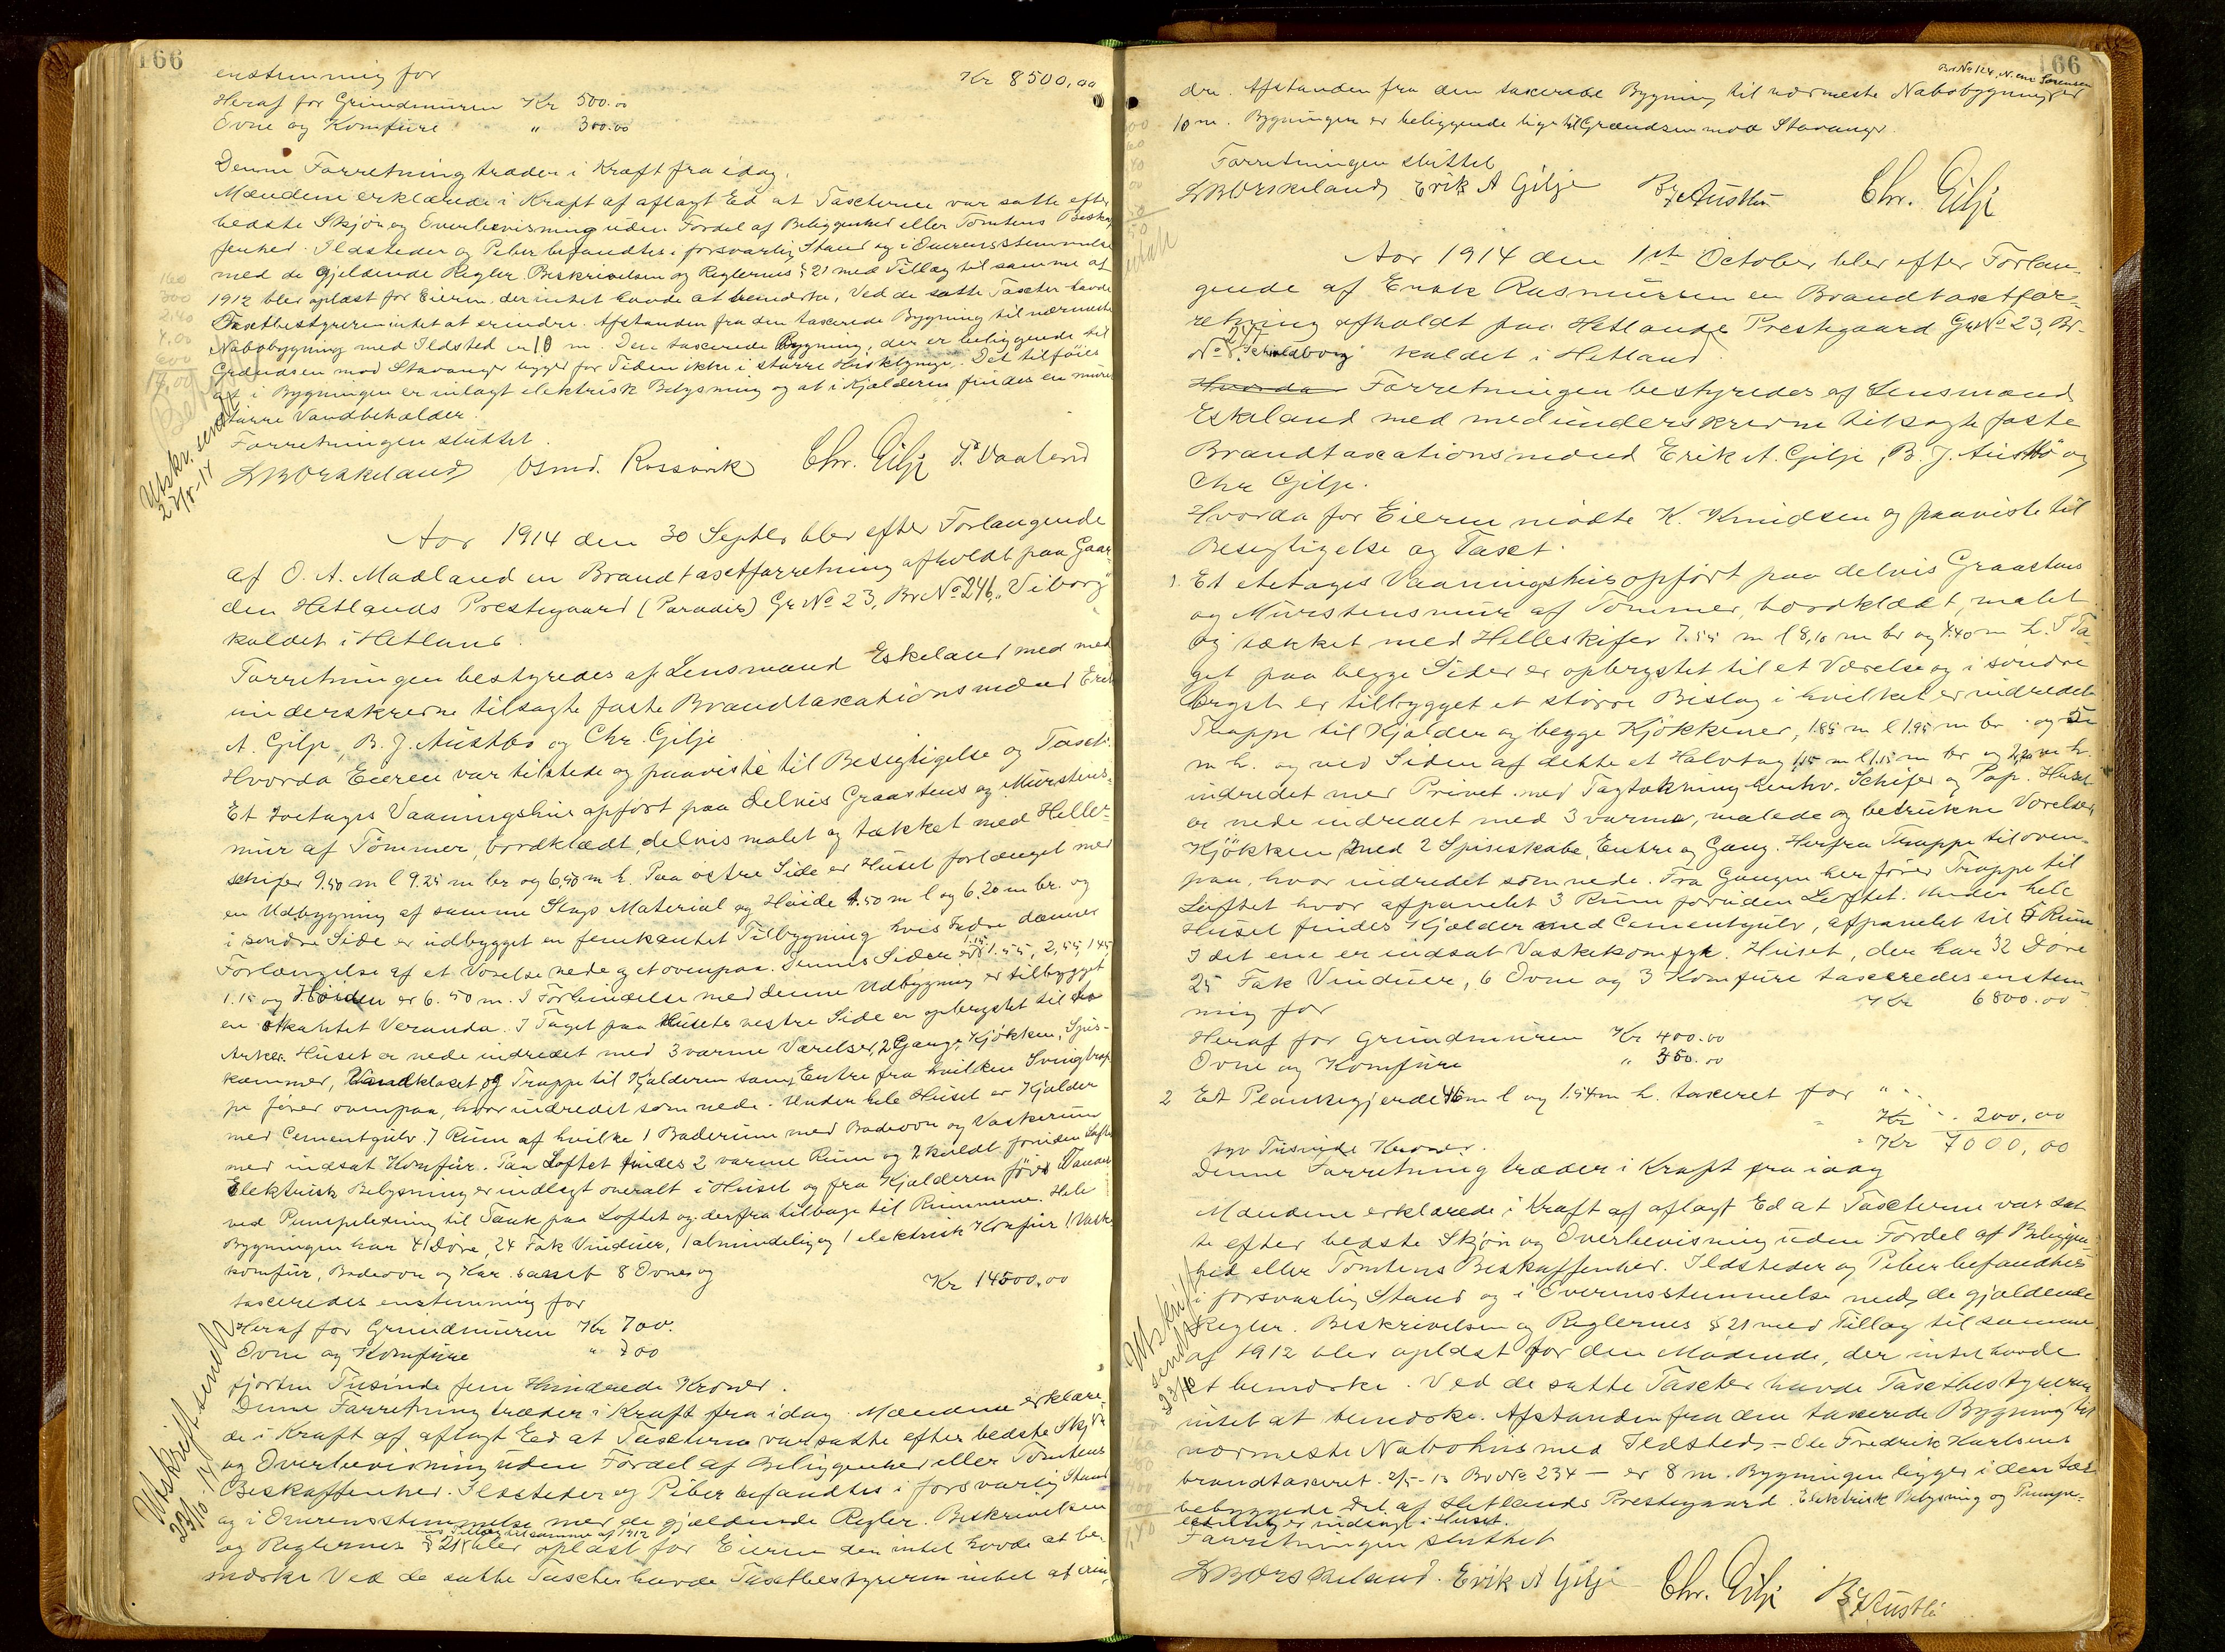 166
enstemmig for Kr 8500,00
Heraf for Grundmuren Kr 500.00
Ovne og Komfüre " 300.00
Denne Forretning træder i Kraft fra idag.
Mændene erklærede i Kraft af aflagt Ed at Taxterne var satte efter
bedste Skjøn og Overbevisning uden Fordel af Beliggenhed eller Tomtens Beskaf
fenhed. Ildsteder og Piber befandtes i forsvarlig Stand og i Overensstemmelse
med de gjeldende Regler. Beskrivelsen og Reglernes § 21 med Tillæg til samme af
1912 blev oplæst for Eieren, der intet havde at bemerke. Ved de satte Taxter havde
Taxtbestyreren intet at erindre. Afstanden fra den taxerede Bygning til nærmeste
Nabobygning med Ildsted er 10 m. Den taxerede Bygning, der er beliggende til
Grændsen mod Stavanger ligger for Tiden ikke i større Husklynge. Det tilføies
at i Bygningen er inlagt elektrisk Belysning og at i Kjælderen findes en muret
større Vandbeholder.
Forretningen sluttet.
Osmd. Rossavik Chr. Gilje T. Vaaland
Utskr. sendt
Aar 1914 den 30 Septbr blev efter Forlangende
af O. A. Madland en Brandtaxtforretning afholdt paa Gaar
den Hetlands Prestegaard (Paradis) Gr No 23, Br No 246, "Viborg"
kaldet i Hetland.
Forretningen bestyredes af Lensmand Eskeland med med
underskrevne tilsagte faste Brandtaxationsmænd Erik
A. Gilje, B. J. Austbø og Chr. Gilje
Hvorda Eieren var tilstede og paaviste til Besigtigelse og Taxt:
Et toetages Vaaningshus opført paa delvis Graastens og Murstens-
mur af Tømmer, bordklædt, delvis malet og tækket med Helle-
schifer 9.50 m l 9.25 m br og 6,50 m h. Paa østre Side er Huset forlænget med
en Udbygning af samme Slags Material og Høide 4.50 m l og 6.20 m br. og
i søndre Side er udbygget en femkantet Tilbygning hvis Indre danner
Forlængelse af et Værelse nede og et ovenpaa. Dennes Sider er 1.15, 1.55, 2,55, 1.55,
1.15 og Høiden er 6.50 m. I Forbindelse med denne Udbygning er tilbygget
en 8kantet Veranda. I Taget paa Husets vestre Side er opbrystet til to
Arker. Huset er nede indredet med 3 varme Værelser, 2 Gange, Kjøkken, Spis-
kammer, Vandkloset og Trappe til Kjælderen samt Entre fra hvilken Svingtrap
pe fører ovenpaa, hvor indredet som nede. Under hele Huset er Kjælder
med Cementgulv 7 Rum af hvilke 1 Baderum med Badeovn og Vaskerum
med indsat Komfür. Paa Loftet findes 2 varme Rum og 2 koldt foruden Loftet
Elektrisk Belysning er indlagt overalt i Huset og fra Kjælderen føres Vandet
ved Pumpeledning til Tank paa Loftet og derfra tilbage til Rummene. Hele
Bygningen har 41 Døre, 24 Fak Vinduer, 1 almindelig og 1 elektrisk Komfür 1 Vaske
komfür, Badeovn og Kar samt 8 Ovne og
taxeredes enstemmig for Kr 14500.00
Heraf for Grundmuren Kr 700.
Ovne og Komfüre " 700
fjorten Tusinde fem Hundrede Kroner.
Denne Forretning træder i Kraft fra idag. Mændene erklære-
de i Kraft af aflagt Ed at Taxterne var satte efter bedste Skjøn
og Overbevisning uden Fordel af Beliggenhed eller Tomtens
Beskaffenhed. Ildsteder og Piber befandtes i forsvarlig Stand
og i Overensstemmelse med de gjældende Regler. Beskrivelsen
med Tillæg til samme af 1912
og Reglernes § 21 blev oplæst for Eieren der intet havde at be
mærke Ved de satte Taxter havde Taxtbestyreren intet at erin
Utskrift sendt
23/10-14
166
Br No 124, N. en Sørensen
dre. Afstanden fra den taxerede Bygning til nærmeste Nabobygning er
10 m. Bygningen er beliggende lige til Grændsen mod Stavanger.
Forretningen sluttet
Erik A Gilje B J Austbø Chr. Gilje
Aar 1914 den 1ste October blev efter Forlan-
gende af Enok Rasmussen en Brandtaxtfor-
retning afholdt paa Hetlands Prestegaard Gr No 23, Br-
No kaldet i Hetland.
Hvorda Forretningen bestyredes af Lensmand
Eskeland med medunderskrevne tilsagte faste
Brandtaxationsmænd Erik A. Gilje, B. J. Austbø og
Chr Gilje.
Hvorda for Eieren mødte K. Knudsen og paaviste til
Besigtigelse og Taxt.
1 Et etetages Vaaningshus opført paa delvis Graastens
og Murstensmur af Tømmer, bordklædt, malet
og tækket med Helleskifer 7.55 m l 8,10 m br og 4.40 m h. I Ta-
get paa begge Sider er opbrystet til et Værelse og i søndre
Bryst er tilbygget et større Bislag i hvilket er indredet
Trappe til Kjælder og begge Kjøkkener, 1.85 m l 1.95 m br. og 5
m h. og ved Siden af dette et Halvtag 1,15 m l 1.15 m br og 2,20 m h.
indredet med Privet. med Tagtækning henhv. Schifer og Pap. Huset
er nede indredet med 3 varme, malede og betrukne Værelser,
Kjøkken med 2 Spiseskabe, Entre og Gang. Herfra Trappe til oven-
paa, hvor indredet som nede. Fra Gangen her fører Trappe til
Loftet hvor afpanelet 3 Rum foruden Loftet. Under hele
Huset findes Kjælder med Cementgulv, afpanelet til 5 Rum
I det ene er indsat Vaskekomfyr. Huset, der har 32 Døre
25 Fak Vinduer, 6 Ovne og 3 Komfüre taxeredes enstem-
mig for Kr 6800.00
Heraf for Grundmuren Kr 400.00
Ovne og Komfüre " 350.00
2 Et Plankegjerde 46 m l og 1.54 m h. taxeret for "
Kr 200,00
syv Tusinde Kroner. Kr 7000,00
Denne Forretning træder i Kraft fra idag
Mændene erklærede i Kraft af aflagt Ed at Taxterne var sat
te efter bedste Skjøn og Overbevisning uden Fordel af Beliggen-
hed eller Tomtens Beskaffenhed. Ildsteder og Piber befandtes
i forsvarlig Stand og i Overensstemmelse med de gjældende
Regler. Beskrivelsen og Reglernes § 21 med Tillæg til samme
af 1912 blev oplæst for den Mødende, der intet havde
at bemærke. Ved de satte Taxter havde Taxtbestyreren
intet at bemærke. Afstanden fra den taxerede Bygning til
nærmeste Nabohus med Ildsted, – Ole Fredrik Karlsens
brandtaxeret Br No 234 – er 8 m. Bygningen ligger i den tæt
bebyggede Del af Hetlands Prestegaard. Elektrisk Belysning og Pumpe-
ledning er indlagt i Huset.
Forretningen sluttet
Erik A Gilje Chr. Gilje B J Austbø
Utskrift
sendt
23/10